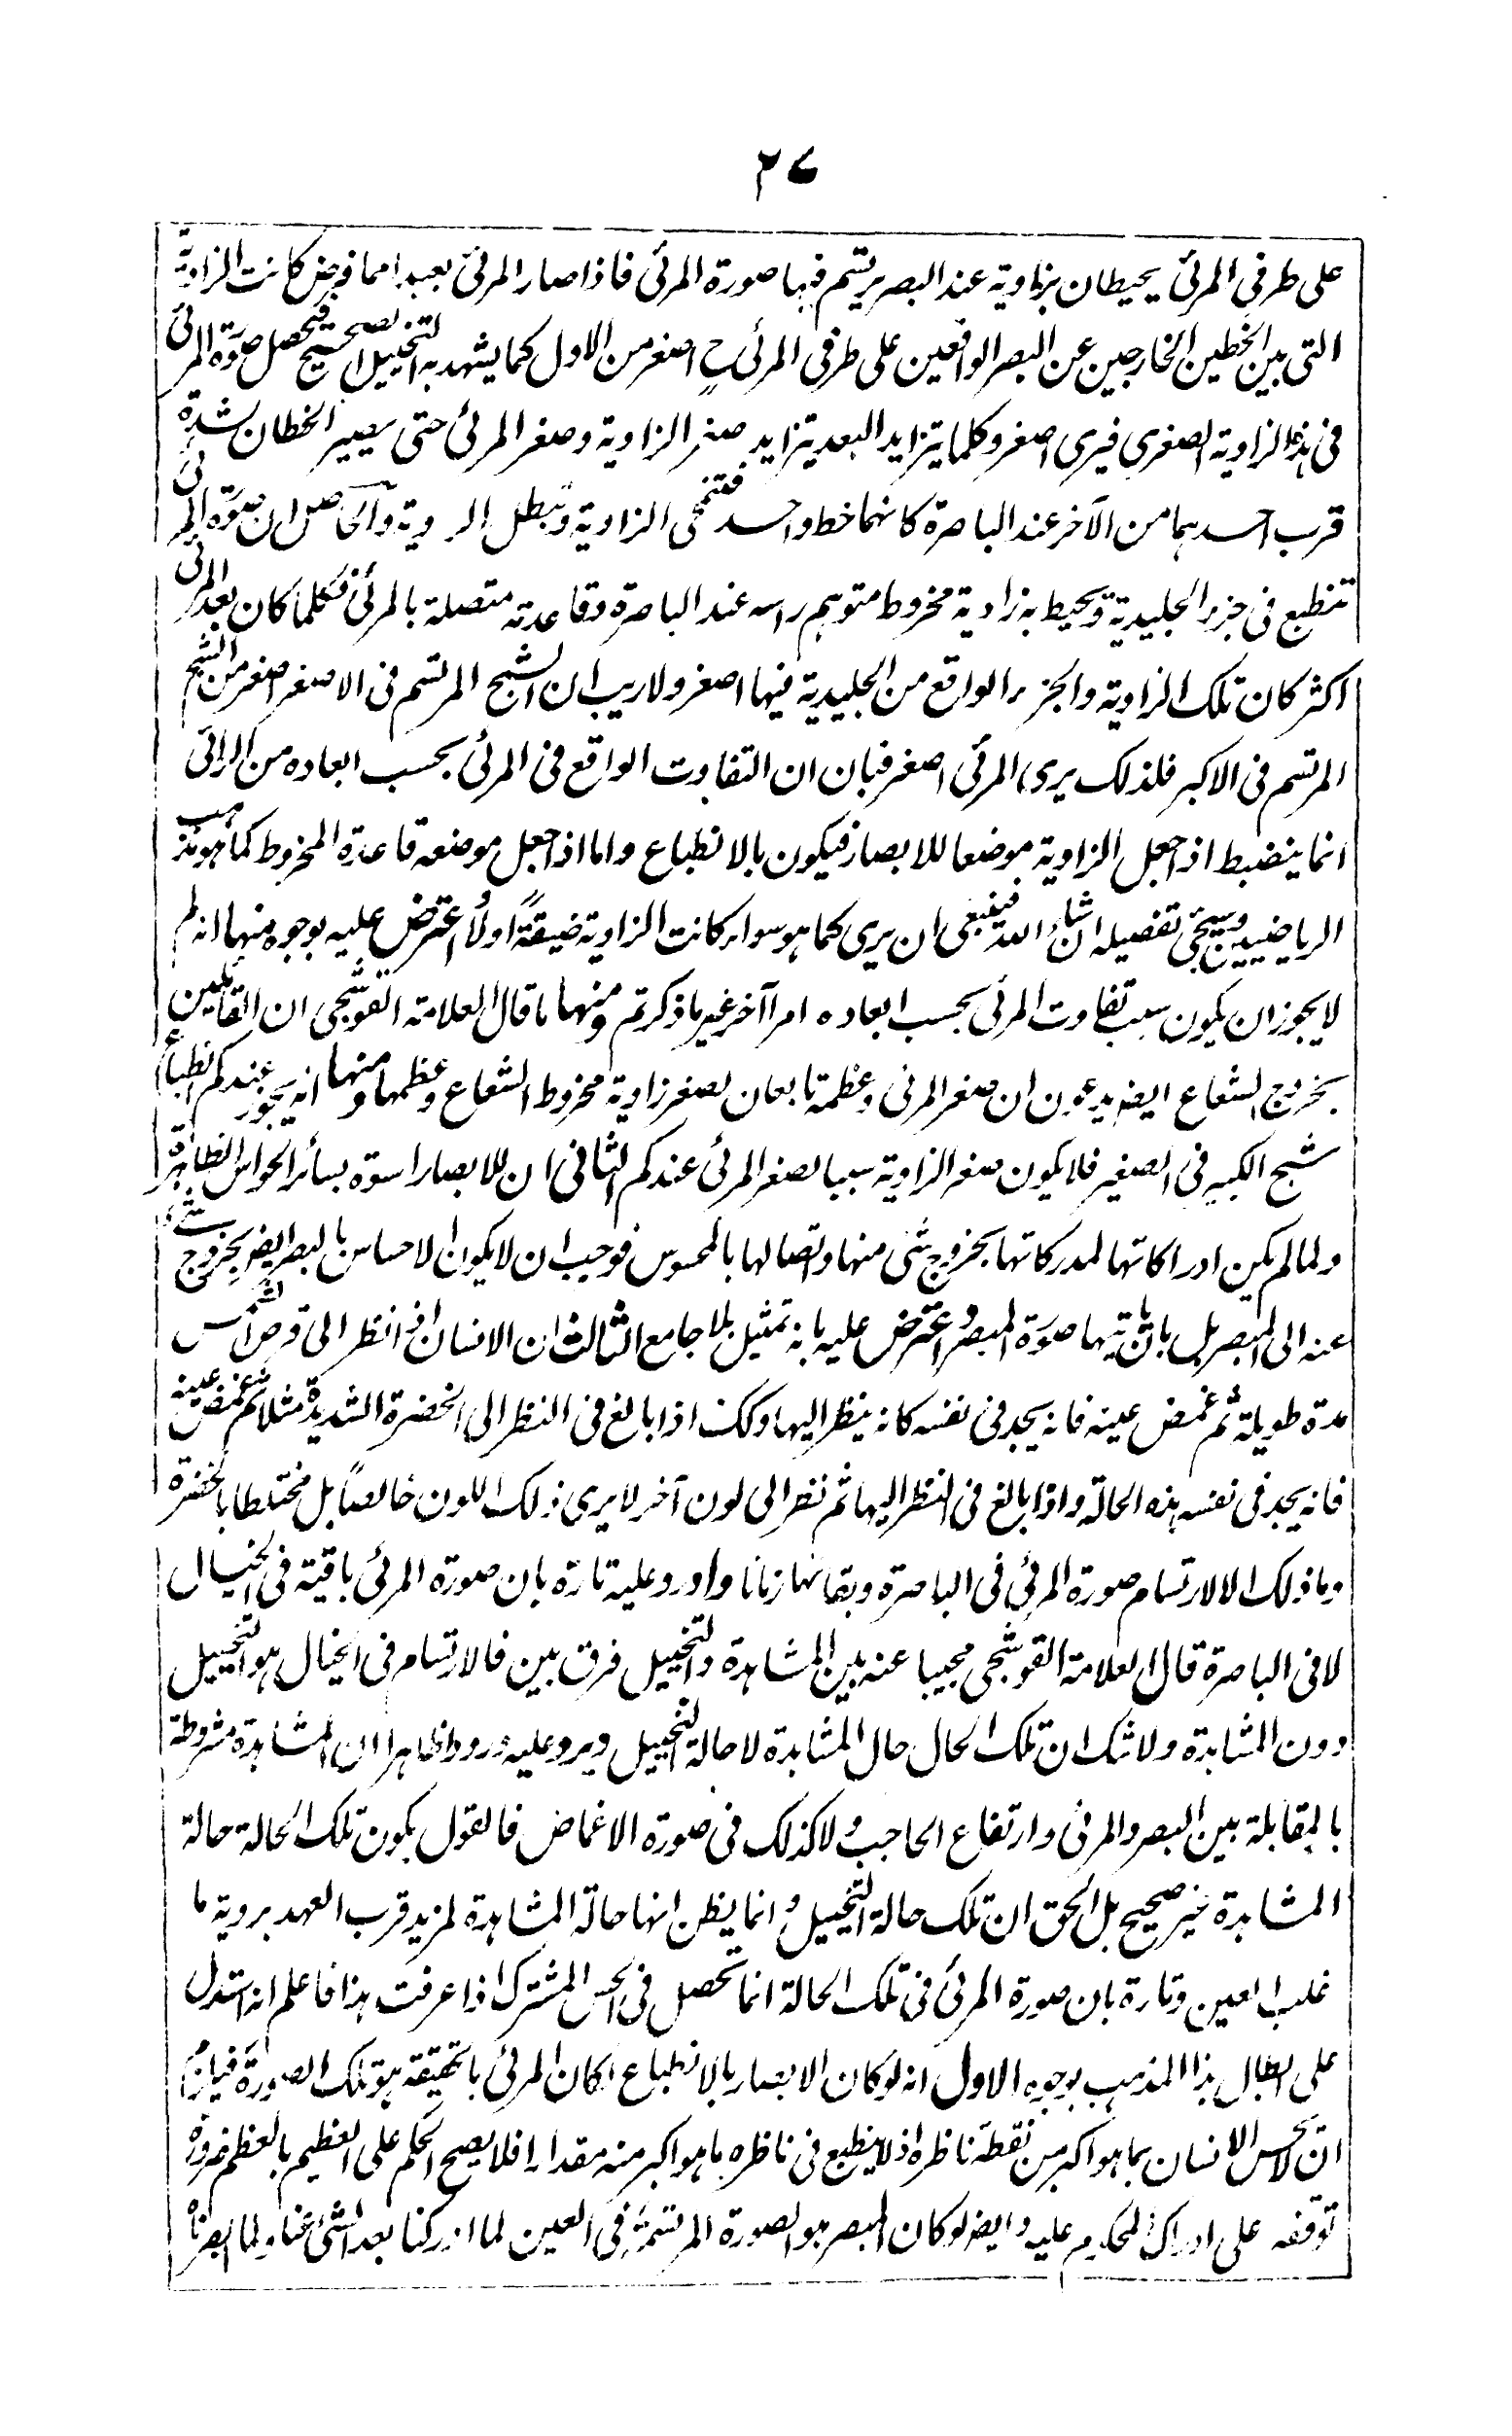 ٢٧
على طرفي المرئي يحيطان بزاوية عند البصر يرتسم فيها صورة المرئي فاذا صار المرئي بعيدا مما فرض كانت الزاوية
التي بين الخطين الخارجين عن البصر الواقعين على طرفي المرئي ح اصغر من الاول كما يشهد به التخييل الصحيح فتحصل صورة المرئي
في هذه الزاوية الصغرى فيرى اصغر وكلما يتزايد البعد يتزايد صغر الزاوية وصغر المرئي حتى يصير الخطان لشدة
قرب احدهما من الآخر عند الباصرة كانهما خط واحد فتنمحى الزاوية وتبطل الروية والحاصل ان صورة المرئي
تنطبع في جزء الجليدية ويحيط به زاوية مخروط متوهم راسه عند الباصرة وقاعدته متصلة بالمرئي فكلما كان بعد المرئي
اكثر كان تلك الزاوية والجزء الواقع من الجليدية فيها اصغر ولا ريب ان الشبح المرتسم في الاصغر اصغر من الشبح
المرتسم في الاكبر فلذلك يرى المرئي اصغر فبان ان التفاوت الواقع في المرئي بحسب ابعاده من الرائي
انما ينضبط اذا جعل الزاوية موضعا للابصار فيكون بالانطباع واما اذا جعل موضعه قاعدة المخروط كما هو مذهب
الرياضيين وسيجئ تفصيله ان شاء الله فينبغي ان يرى كما هو سواء كانت الزاوية ضيقة اولا واعترض عليه بوجوه منها انه لم
لا يجوز ان يكون سبب تفاوت المرئي بحسب ابعاده امرا آخر غير ما ذكرتم ومنها ما قال العلامة القوشجي ان القائلين
بخروج الشعاع ايضا يدعون ان صغر المرئي وعظمه تابعان لصغر زاوية مخروط الشعاع وعظمها ومنها انه يجوز عندكم انطباع
شبح الكبير في الصغير فلا يكون صغر الزاوية سببا لصغر المرئي عندكم الثاني ان للابصار اسوة بسائر الحواس الظاهرة
ولما لم يكن ادراكاتها لمدركاتها بخروج شئ منها واتصالها بالمحسوس فوجب ان لا يكون الاحساس بالبصر ايضا بخروج شئ
عنه الى المبصر بل بان ياتيها صورة المبصر واعترض عليه بانه تمثيل بلا جامع الثالث ان الانسان اذا نظر الى قرص الشمس
مدة طويلة ثم غمض عينه فانه يجد في نفسه كانه ينظر اليها وكك اذا بالغ في النظر الى الخضرة الشديدة مثلا ثم غمض عينه
فانه يجد في نفسه هذه الحالة واذا بالغ في النظر اليها ثم نظر الى لون آخر لا يرى ذلك اللون خالصا بل مختلطا بالخضرة
وما ذلك الا لارتسام صورة المرئي في الباصرة وبقائها زمانا واورد عليه تارة بان صورة المرئي باقية في الخيال
لا في الباصرة قال العلامة القوشجي مجيبا عنه بين المشاهدة والتخييل فرق بين فالارتسام في الخيال هو التخييل
دون المشاهدة ولا شك ان تلك الحال حال المشاهدة لا حالة التخييل ويرد عليه ورودا ظاهرا ان المشاهدة مشروطة
بالمقابلة بين البصر والمرئي وارتفاع الحاجب ولا كذلك في صورة الاغماض فالقول بكون تلك الحالة حالة
المشاهدة غير صحيح بل الحق ان تلك حالة التخييل وانما يظن انها حالة المشاهدة لمزيد قرب العهد بروية ما
غلب العين وتارة بان صورة المرئي في تلك الحالة انما تحصل في الحس المشترك اذا عرفت هذا فاعلم انه استدل
على ابطال هذا المذهب بوجوه الاول انه لو كان الابصار بالانطباع لكان المرئي بالحقيقة هو تلك الصورة فيلزم
ان لا يحس الانسان بما هو اكبر من نقطة ناظره اذ لا ينطبع في ناظره ما هو اكبر منه مقدارا فلا يصح الحكم على العظيم بالعظم ضرورة
توقفه على ادراك المحكوم عليه وايضا لو كان المبصر هو الصورة المرتسمة في العين لما ادركنا بعد الشئ عنا ولما ابصرنا